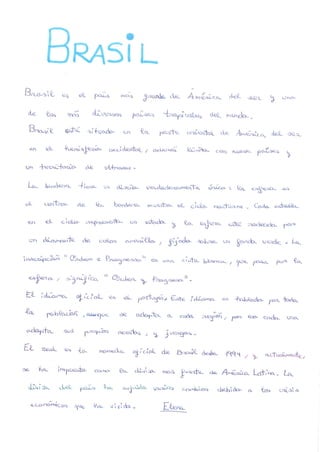 BRASIL
Brasil es el país más grande de América del sur y uno
de los más diversos países tropicales del mundo.
Brasil está situado en la parte oriental de América del sur
en el hemisferio occidental, además limita con nueve países y
un territorio de ultramar.
La bandera tiene un diseño verdaderamente único: la esfera en
el centro de la bandera muestra el cielo nocturno. Cada estrella
en el cielo representa un estado y la esfera está rodeada por
un diamante de color amarillo, fijado sobre un fondo verde. La
inscripción "Ordem e Progresso" es una cinta blanca, que pasa por la
esfera, significa "Orden y Progreso".
El idioma oficial es el portugés. Este idioma es hablado por toda
la población, aunque se adapta a cada región, por eso cada una
adapta sus propios acentos, y jergas.
El Real es la moneda oficial de Brasil desde 1994, y actualmente,
se ha impuesto como la divisa más fuerte de América Latina. La
divisa del país ha sufrido varios cambios debido a las crisis
económicas que ha vivido.
Elena